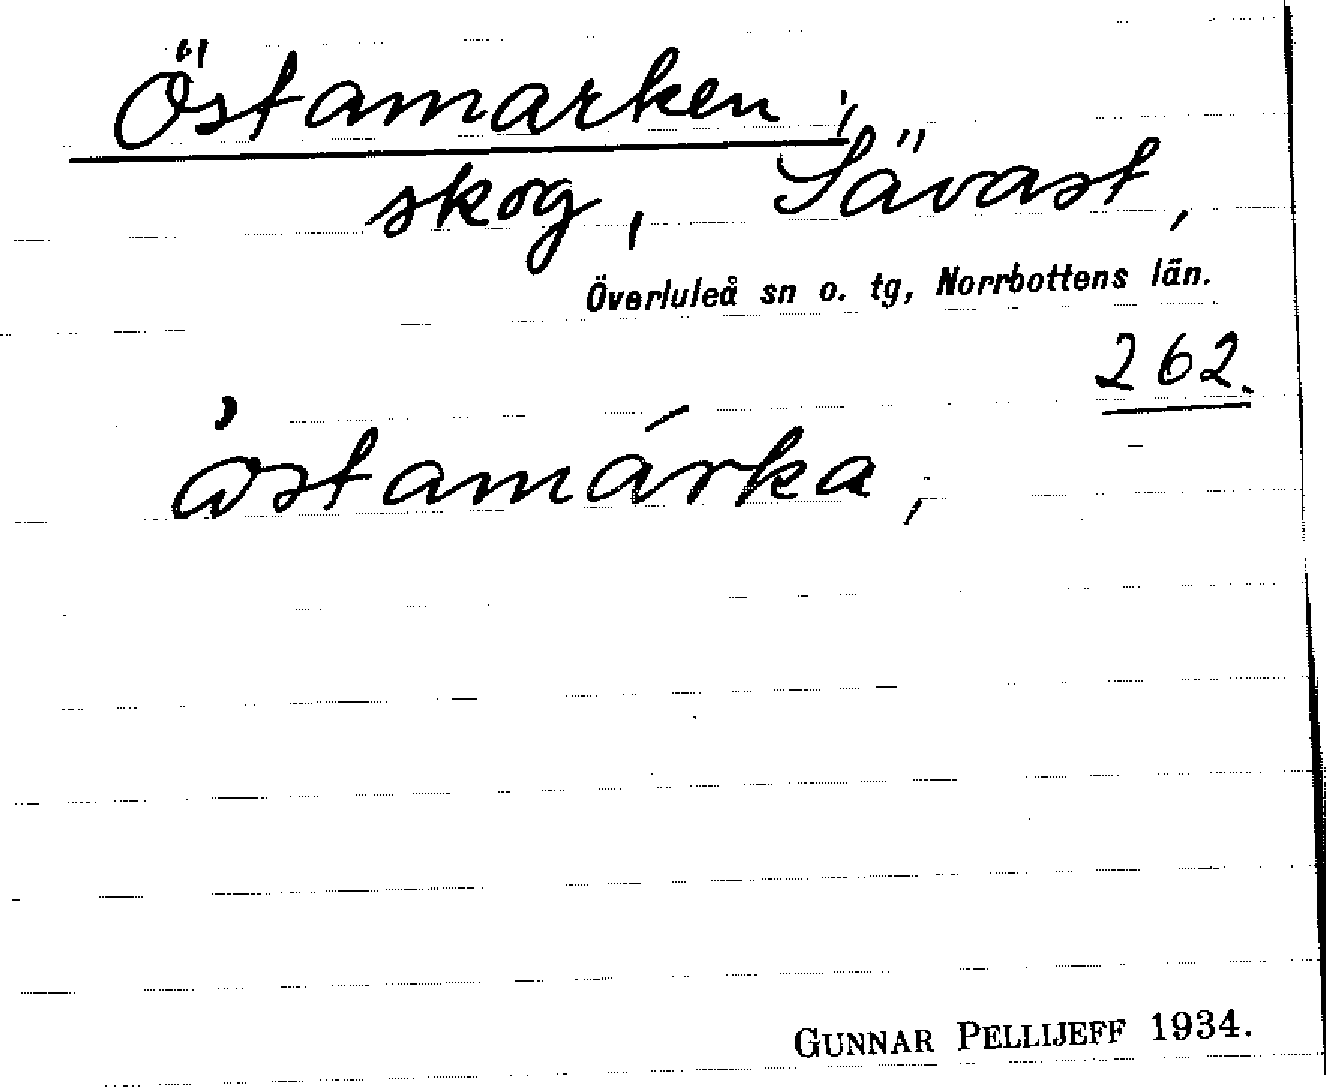 Östamarken;
skog, Sävast,
Överluleå sn o. tg, Norrbottens län.
262.
östamárka,
GUNNAR PELLIJEFF 1934.